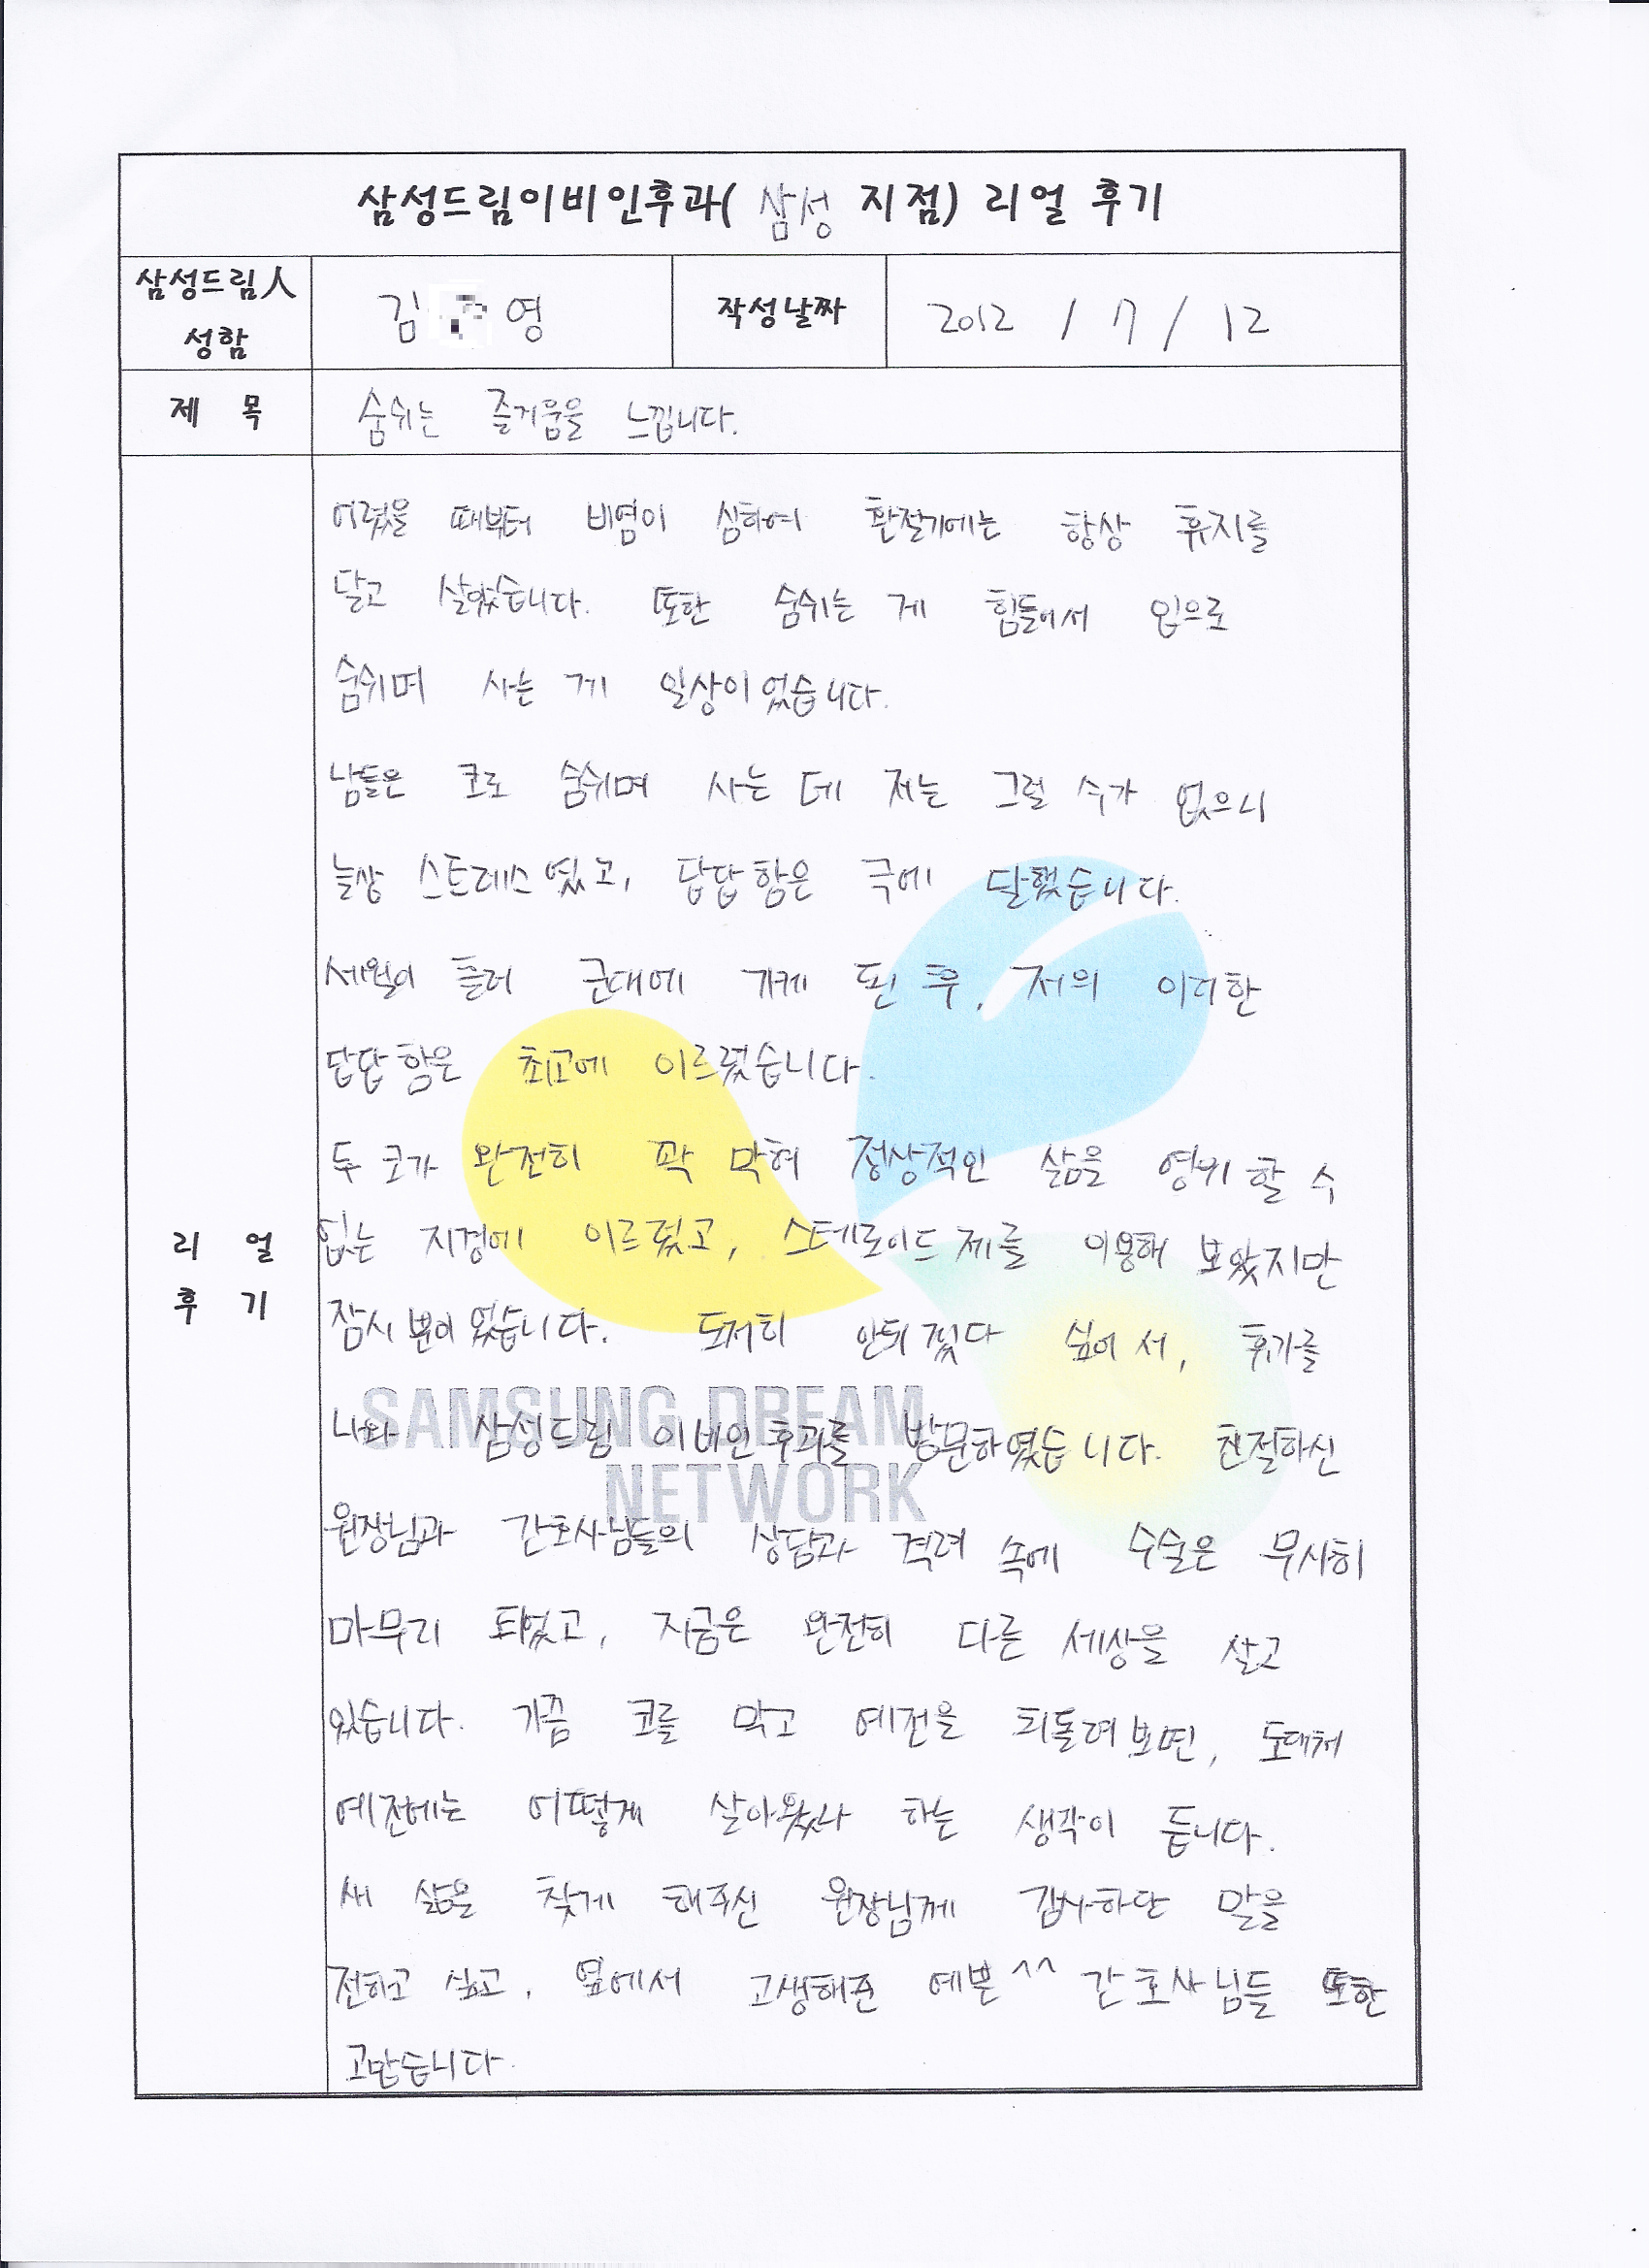 삼성드림이비인후과( 삼성 지점) 리얼 후기
삼성드림人
성함
김 영
작성날짜
2012 / 7 / 12
제 목
숨쉬는 즐거움을 느낍니다.
어렸을 때부터 비염이 심하여 환절기에는 항상 휴지를
달고 살았습니다. 또한 숨쉬는 게 힘들어서 입으로
숨쉬며 사는 게 일상이었습니다.
남들은 코로 숨쉬며 사는 데 저는 그럴 수가 없으니
늘상 스트레스였고, 답답함은 극에 달했습니다.
세월이 흘러 군대에 가게 된 후, 저의 이러한
답답함은 최고에 이르렀습니다.
두 코가 완전히 꽉 막혀 정상적인 삶을 영위할 수
리 얼
후 기
없는 지경에 이르렀고, 스테로이드제를 이용해 보았지만
잠시 뿐이었습니다. 도저히 안되겠다 싶어서, 휴가를
나와 삼성드림 이비인후과를 방문하였습니다. 친절하신
SAMSUNG DREAM
NETWORK
원장님과 간호사님들의 상담과 격려 속에 수술은 무사히
마무리 되었고, 지금은 완전히 다른 세상을 살고
있습니다. 가끔 코를 막고 예전을 되돌려보면, 도대체
예전에는 어떻게 살아왔나 하는 생각이 듭니다.
새 삶을 찾게 해주신 원장님께 감사하단 말을
전하고 싶고, 옆에서 고생해준 예쁜^^ 간호사님들 또한
고맙습니다.